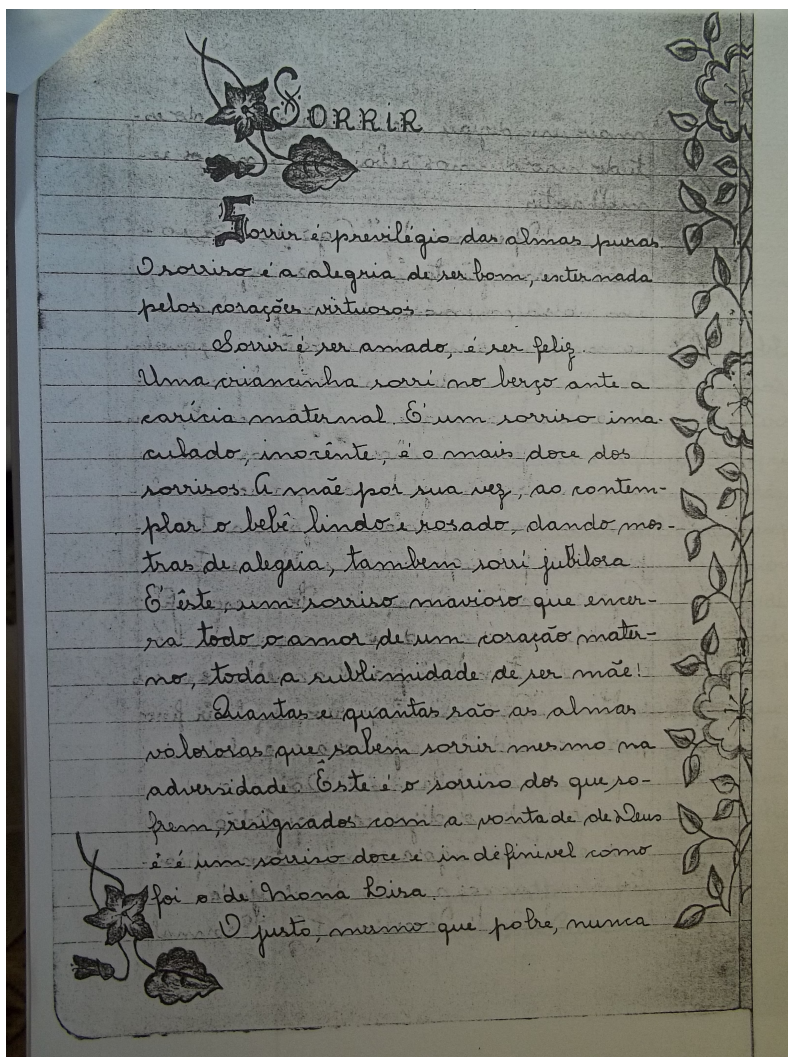 SORRIR
Sorrir é previlégio das almas puras
O sorriso é a alegria de ser bom, externada
pelos corações virtuosos
Sorrir é ser amado, é ser feliz.
Uma criancinha sorri no berço ante a
carícia maternal. É um sorriso ima-
culado, inocênte, é o mais doce dos
sorrisos. A mãe por sua vez, ao contem-
plar o bebê lindo e rosado, dando mos-
tras de alegria, tambem sorri jubilosa
É êste, um sorriso mavioso que encer-
ra todo o amor de um coração mater-
no, toda a sublimidade de ser mãe!
Quantas e quantas são as almas
valorosas que sabem sorrir mesmo na
adversidade. Êste é o sorriso dos que so-
frem, resignados com a vontade de Deus
é é um sorriso doce e indefinivel como
foi o de Mona Lisa.
O justo, mesmo que pobre, nunca